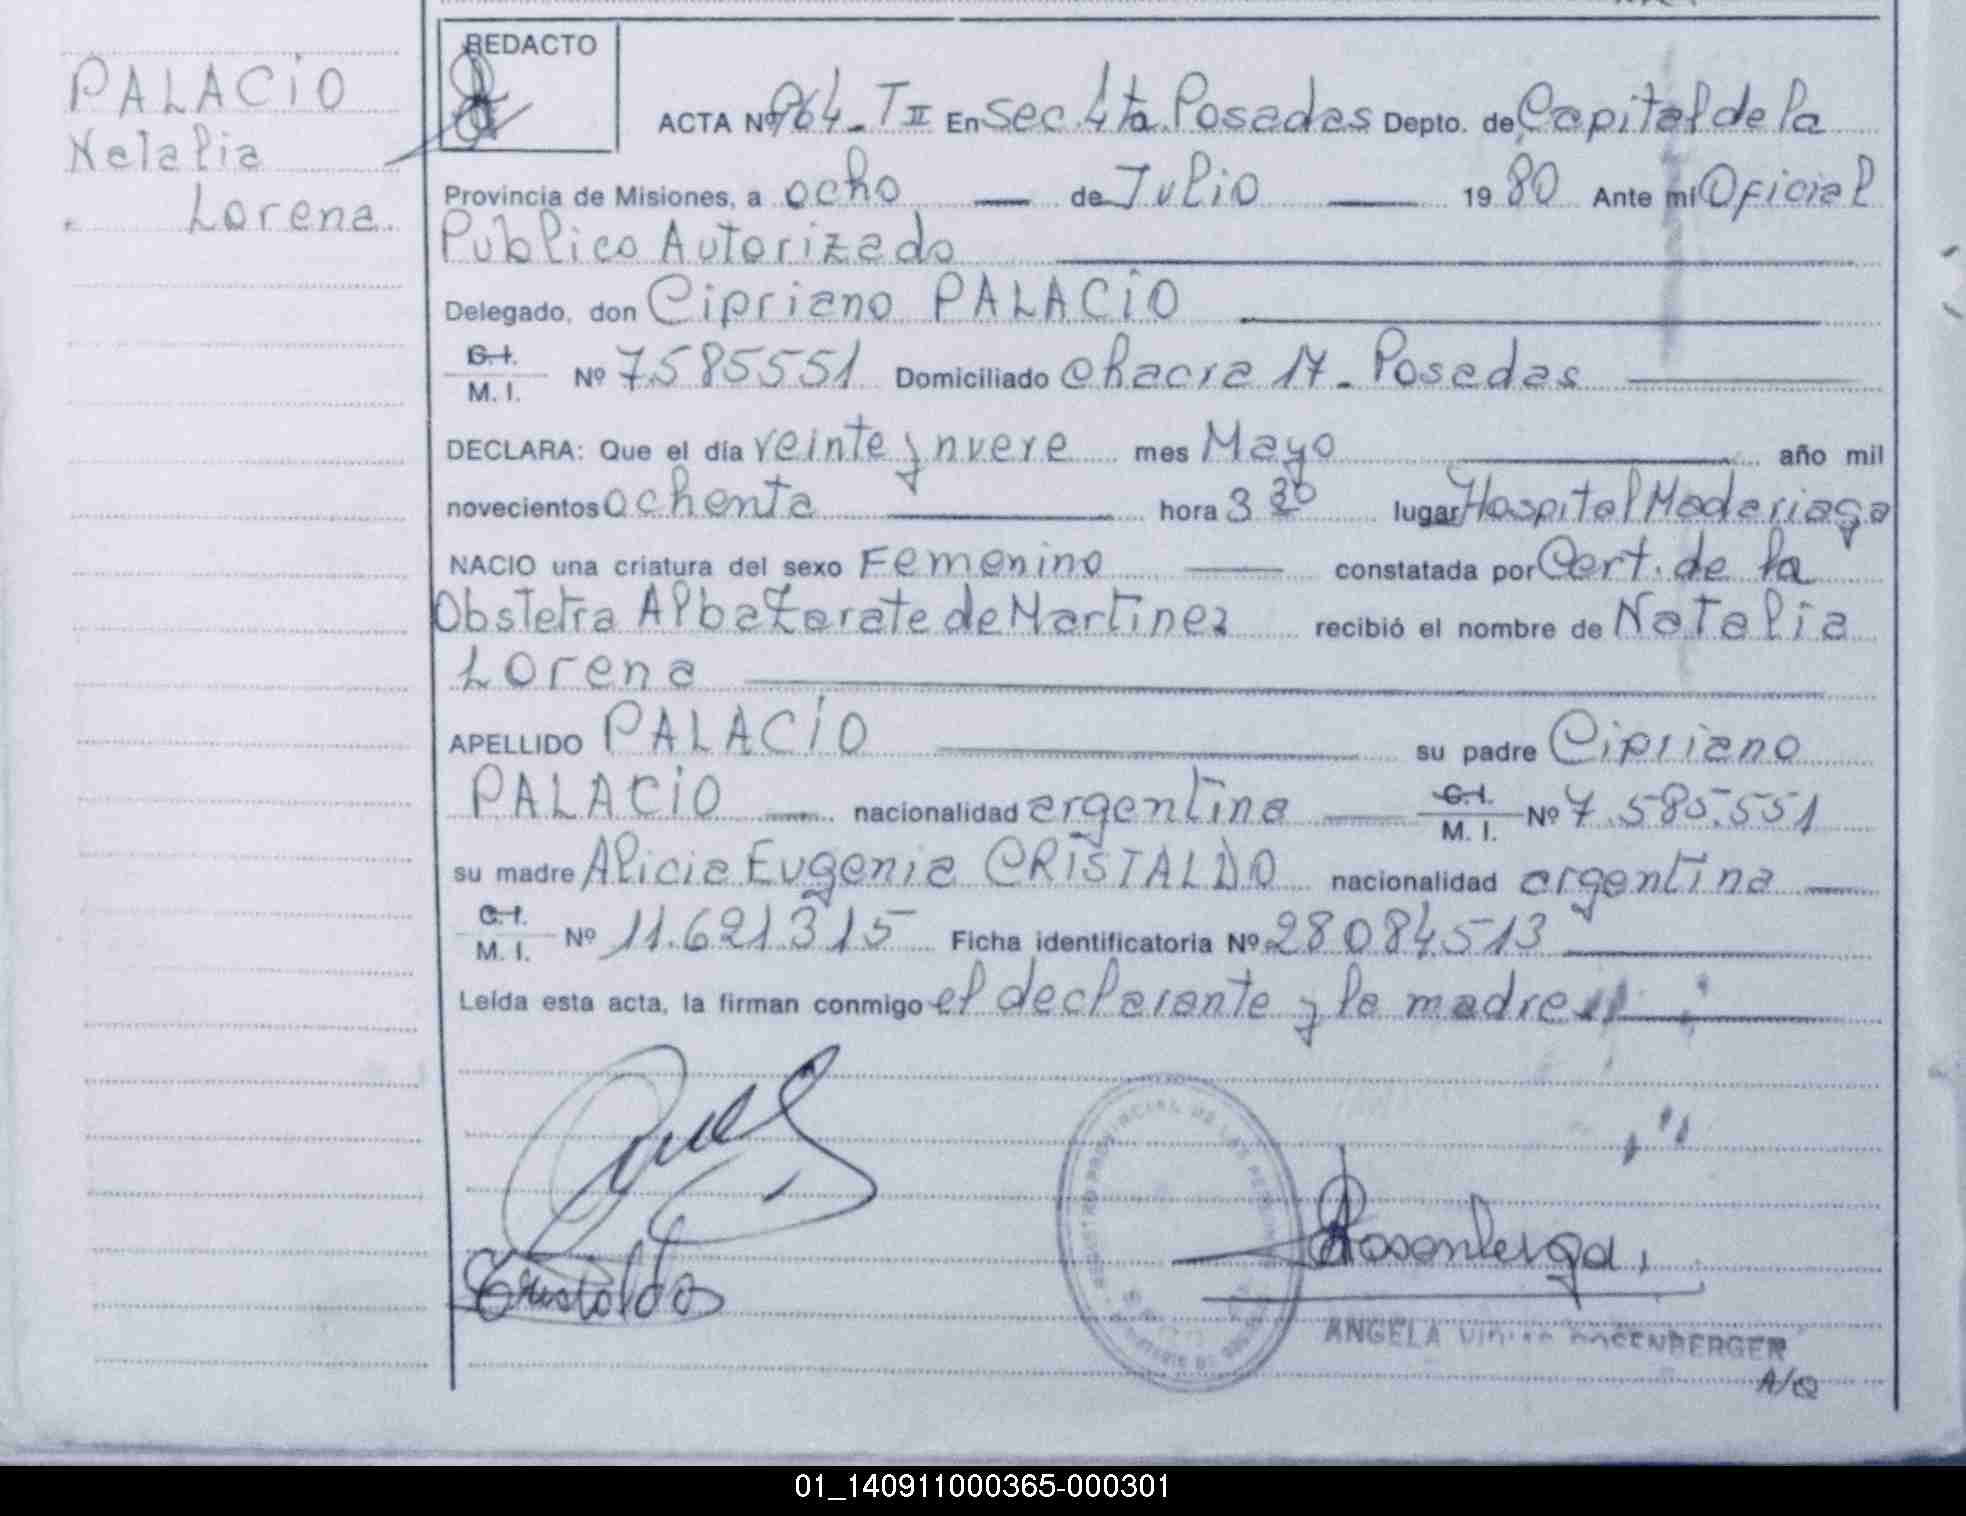 PALACIO
Natalia
Lorena.
REDACTO
ACTA Nº 964 - T II En Sec. 4ta. Posadas Depto. de Capital de la
Provincia de Misiones, a ocho — de Julio — 1980 Ante mí Oficial
Publico Autorizado
Delegado, don Cipriano PALACIO
C. I. / M. I. Nº 7.585551 Domiciliado chacra 17 - Posadas
DECLARA: Que el día veinte y nueve mes Mayo año mil
novecientos ochenta hora 3 30 lugar Hospital Madariaga
NACIO una criatura del sexo Femenino constatada por Cert. de la
Obstetra Alba Zarate de Martinez recibió el nombre de Natalia
Lorena
APELLIDO PALACIO su padre Cipriano
PALACIO — nacionalidad argentina — C. I. / M. I. Nº 7.585.551
su madre Alicia Eugenia CRISTALDO nacionalidad argentina —
C. I. / M. I. Nº 11.621.315 Ficha identificatoria Nº 28084513
Leída esta acta, la firman conmigo el declarante y la madre
Cristaldo
ANGELA ROSENBERGER
01_140911000365-000301